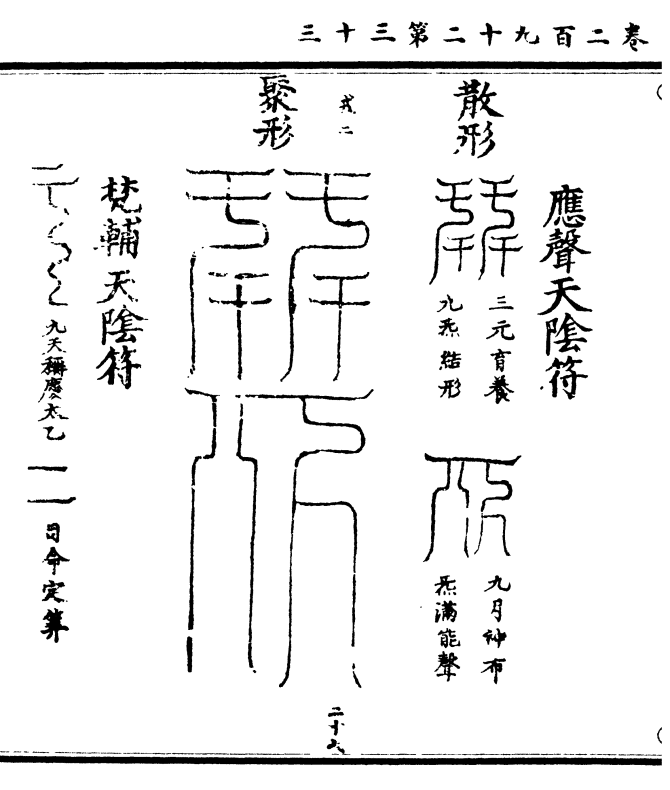 三十三第二十九百二卷
應聲天陰符
散形
三元育養
九炁結形
九月神布
炁滿能聲
戎二
聚形
二十六
梵輔天陰符
九天稱慶太乙
司命定算